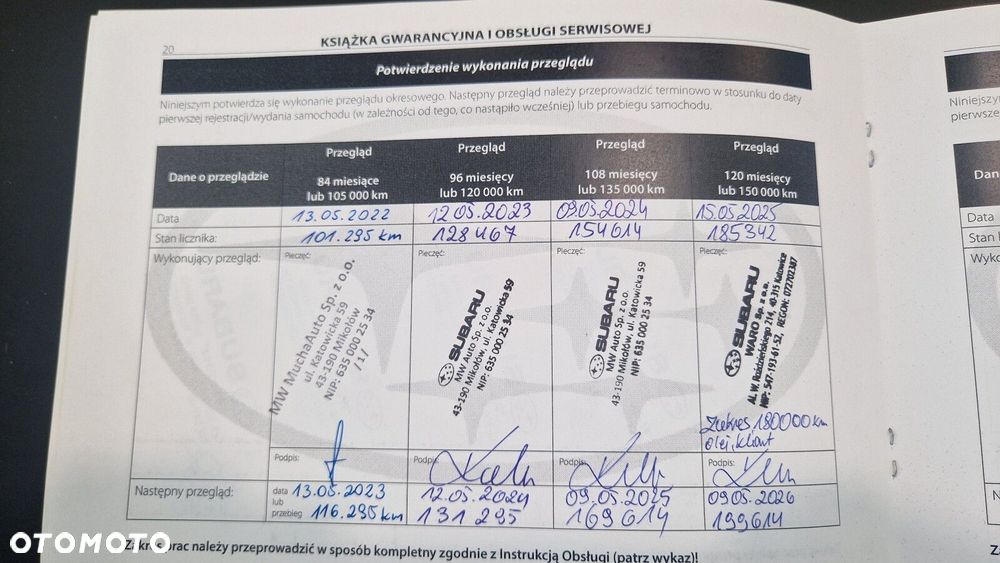 20
KSIĄŻKA GWARANCYJNA I OBSŁUGI SERWISOWEJ
Potwierdzenie wykonania przeglądu
Niniejszym potwierdza się wykonanie przeglądu okresowego. Następny przegląd należy przeprowadzić terminowo w stosunku do daty
pierwszej rejestracji/wydania samochodu (w zależności od tego, co nastąpiło wcześniej) lub przebiegu samochodu.
Dane o przeglądzie
Przegląd
84 miesiące
lub 105 000 km
Przegląd
96 miesięcy
lub 120 000 km
Przegląd
108 miesięcy
lub 135 000 km
Przegląd
120 miesięcy
lub 150 000 km
Data
13.05.2022
12.05.2023
09.05.2024
15.05.2025
Stan licznika:
101.295 km
128467
154614
185342
Wykonujący przegląd:
Pieczęć:
MW MuchaAuto Sp. z o.o.
ul. Katowicka 59
43-190 Mikołów
NIP: 635 000 25 34
/1/
Pieczęć:
SUBARU
MW Auto Sp. z o.o.
43-190 Mikołów, ul. Katowicka 59
NIP: 635 000 25 34
Pieczęć:
SUBARU
MW Auto Sp. z o.o.
43-190 Mikołów, ul. Katowicka 59
NIP: 635 000 25 34
Pieczęć:
SUBARU
WARO Sp. z o.o.
Al. W. Roździeńskiego 214, 40-315 Katowice
NIP: 547-193-61-52, REGON: 072702387
Zakres 180000 km
olej, klient
Podpis:
Podpis:
Podpis:
Podpis:
Następny przegląd:
data
lub
przebieg
13.05.2023
116.295 km
12.05.2024
131 295
09.05.2025
169 614
09.05.2026
199614
Zakres prac należy przeprowadzić w sposób kompletny zgodnie z Instrukcją Obsługi (patrz wykaz)!
Niniejszy
pierwsze
Dan
Data
Stan l
Wyko
N
Za
OTOMOTO